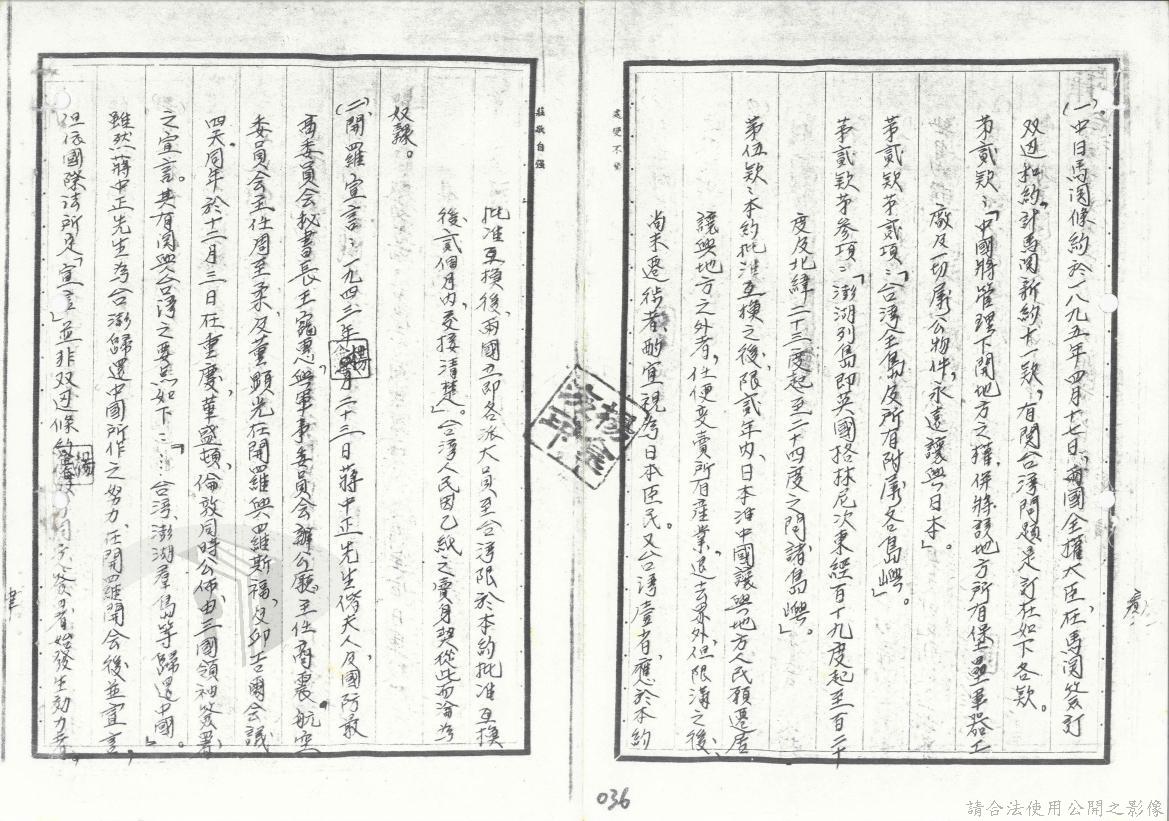 (一)中日馬関條約於一八九五年四月十七日,兩國全權大臣,在馬関簽訂
双边和約,計馬関新約十一款,有関台湾問題是訂在如下各款。
第貳款:「中國將管理下開地方之權,併將該地方所有堡壘軍器工
廠及一切屬公物件,永遠讓與日本」。
第貳款第貳項:「台湾全島及所有附屬各島嶼」。
第貳款第參項:「澎湖列島即英國格林尼次東經百十九度起至百二十
度及北緯二十三度起至二十四度之間諸島嶼」。
第伍款:本約批准互換之後,限貳年內,日本准中國讓與地方人民願遷居
讓與地方之外者,任便变賣所有產業,退去界外,但限滿之後,
尚未遷徙者,酌宜視為日本臣民。又台湾壹省,應於本約
處變不驚
莊敬自強
批准互換後,兩國立即各派大員至台湾限於本約批准互換
後貳個月內,交接清楚」。台湾人民因乙紙之賣身契從此而淪為
奴隸。
(二)開羅宣言:一九四三年 月二十三日蔣中正先生偕夫人及國防最
高委員会秘書長王寵惠,與軍事委員会辦公廳主任商震,航空
委員会主任周至柔,及董顯光在開羅與羅斯福,及邱吉爾会議
四天,同年於十二月三日在重慶,華盛頓,倫敦同時公佈,由三國領袖簽署
之宣言。其有関與台湾之要点如下:「…台湾澎湖羣島等歸還中國」。
雖然蔣中正先生為台澎歸還中國所作之努力,在開羅開会後並宣言,
但依國際法所定「宣言」並非双边條約 簽署始發生効力者,
楊
楊
036
請合法使用公開之影像